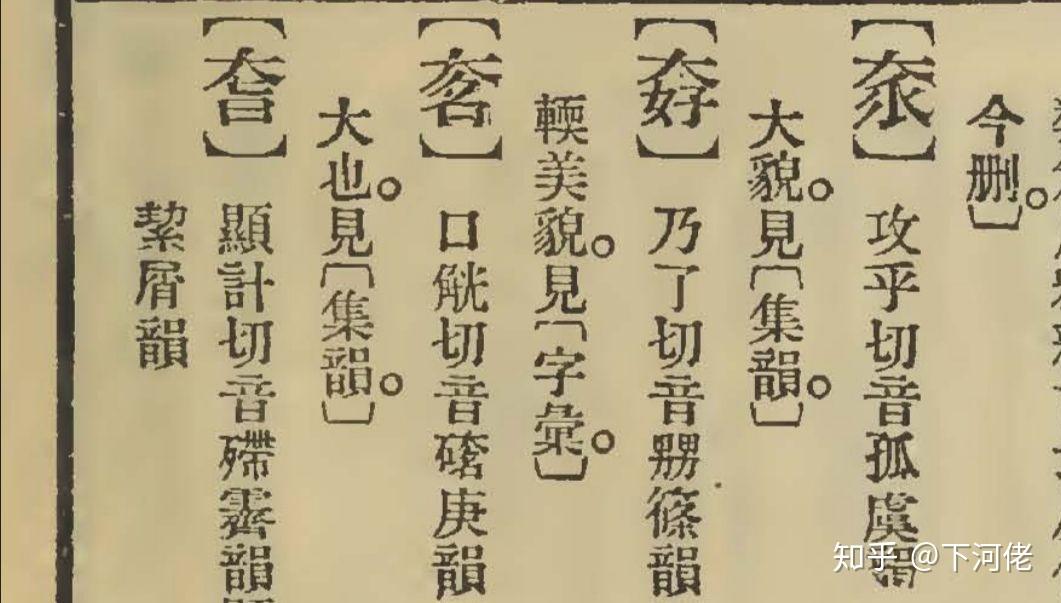 今删。
【】攻乎切音孤虞韻
大貌。見〔集韻。〕
【】乃了切音嬲篠韻
輭美貌。見〔字彙。〕
【】口觥切音庚韻
大也。見〔集韻。〕
【】顯計切音殢霽韻
絜屑韻
知乎 @下河佬